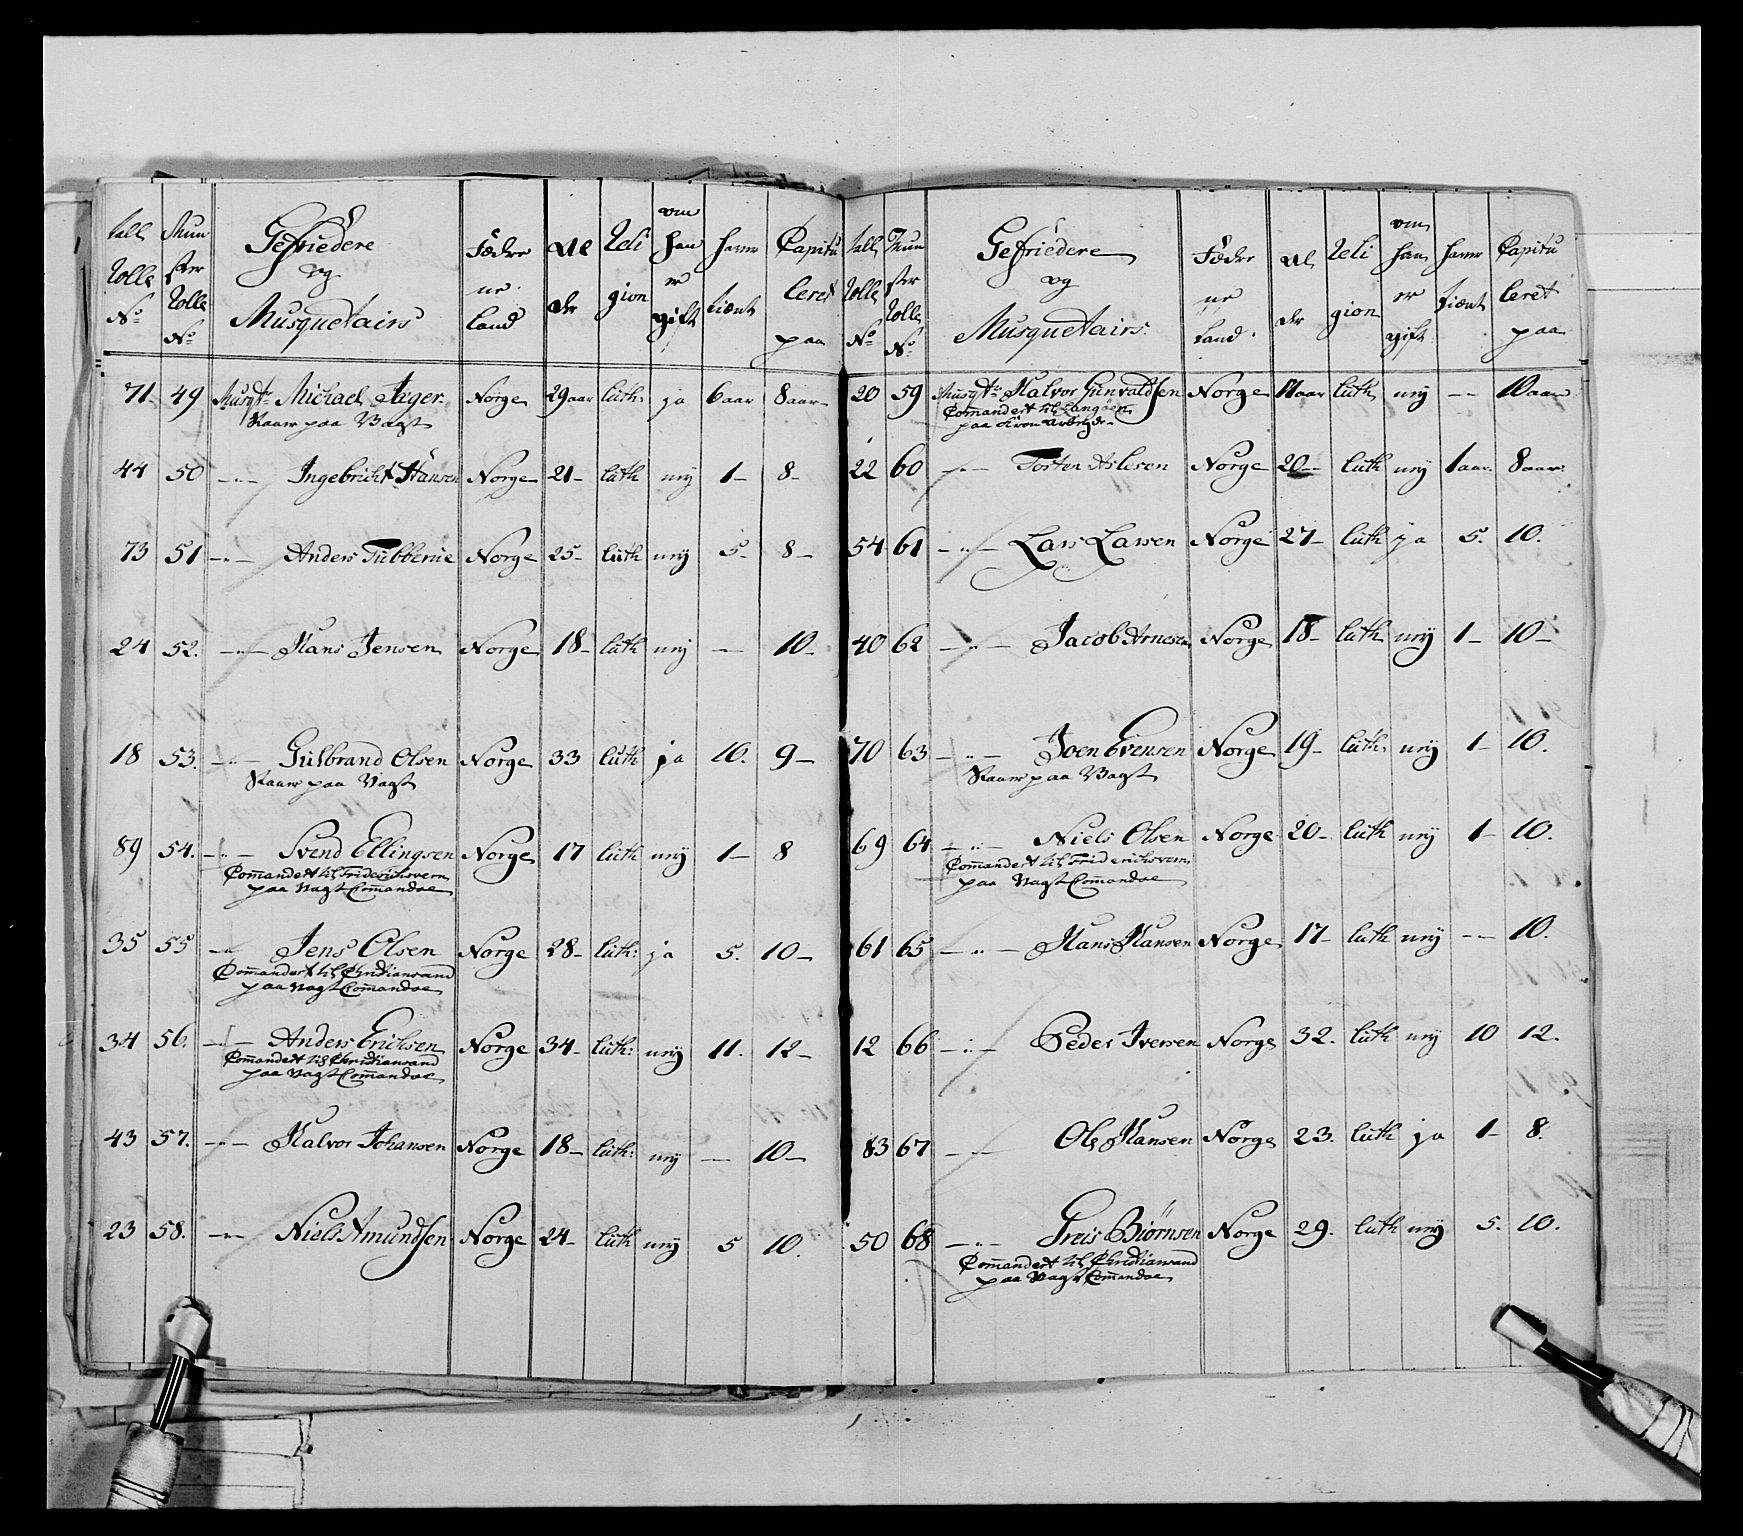 Tall Rolle No | Mun ster Rolle No | Gefriedere og Musquetairs | Fædre ne land | Al der | Reli gion | om han er gift | haver tient | Capitu leret paa
71 49 Musqtr Michael Jager Norge 29 aar luth: ja 6 aar 8 aar
Staaer paa Vagt
44 50 —"— Ingebricht Hansen Norge 21 luth nej 1 8
73 51 —"— Anders Tubberne Norge 25 luth nej 5 8
24 52. —"— Hans Jensen Norge 18 luth nej — 10
18 53. —"— Gulbrand Olsen Norge 33 luth ja 10. 9
Staaer paa Vagt
89 54. —"— Svend Ellingsen Norge 17 luth nej 1 8
Commandert til Friderichsvern
paa Vagt Commandoe
35 55 —"— Jens Olsen Norge 28 luth: ja 5. 10
Commandert til Christiansand
paa Vagt Commandoe
34 56. —"— Anders Erichsen Norge 34 luth: nej 11. 12
Commandert til Christiansand
paa Vagt Commandoe
43 57. —"— Halvor Johansen Norge 18 luth: nej — 10
23 58. —"— Niels Amundsen Norge 24 luth nej 5 10.
Tall Rolle No | Mun ster Rolle No | Gefriedere og Musquetairs. | Fædre ne Land. | Al der | Reli gion | om han er gift | haver tient | Capitu leret paa
20 59 Musqtr Halvor Gunvaldsen Norge 17 aar luth nej — 10 aar
Commandert til Langøen
paa
22 60 —"— Tosten Aslesen Norge 20 luth nej 1 aar 8 aar
54 61 —"— Lars Larsen Norge 27 luth ja 5. 10.
40 62 —"— Jacob Arnesen Norge 18 luth nej 1 10
70 63 —"— Joen Evensen Norge 19 luth: nej 1 10.
Staaer paa Vagt
69 64 —"— Niels Olsen Norge 20 luth nej 1 10.
Commandert til Friderichsvern
paa Vagt Commandoe
61 65 —"— Hans Hansen Norge 17 luth nej — 10.
12 66 —"— Peder Iversen Norge 32. luth nej 10 12.
83 67 —"— Ole Hansen Norge 23. luth ja 1 8.
50 68 —"— Greis Biørnsen Norge 29. luth nej 5. 10.
Commandert til Christiansand
paa Vagt Commandoe